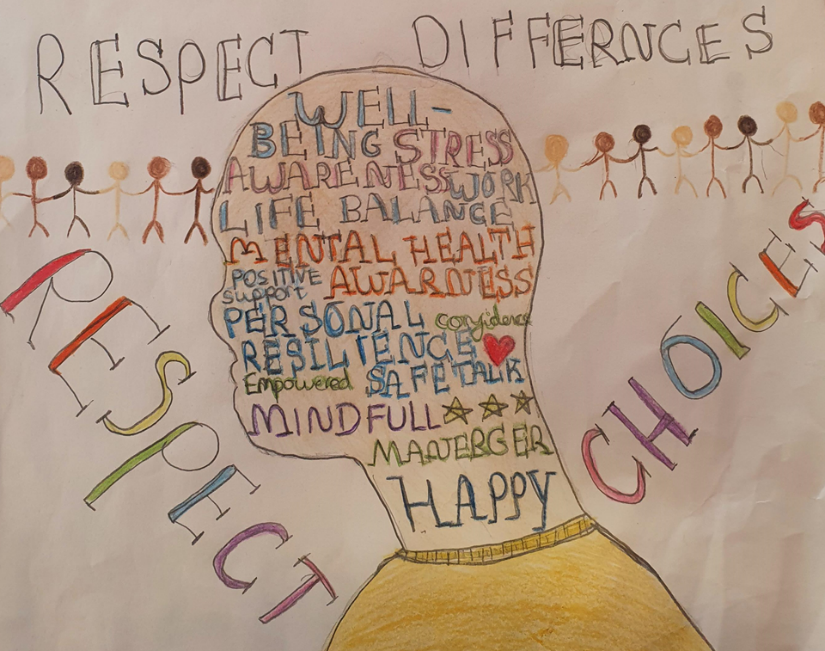 RESPECT DIFFERNCES
WELL-
BEING STRESS
AWARENESS WORK
LIFE BALANCE
MENTAL HEALTH
POSITIVE
support
AWARNESS
PERSONAL confidence
RESILIENCE
Empowered SAFETALK
MINDFULL
MANERGER
HAPPY
RESPECT
CHOICES